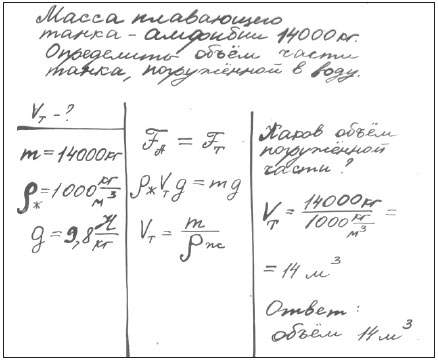 Масса плавающего
танка - амфибии 14000 кг.
Определить объём части
танка, погружённой в воду.
Vт - ?
m = 14000 кг
ρж = 1000 кг/м³
g = 9,8 Н/кг
FА = Fт
ρж Vт g = mg
Vт = m/ρж
Каков объём
погружённой
части?
Vт = 14000 кг / 1000 кг/м³ =
= 14 м³
Ответ:
объём 14 м³